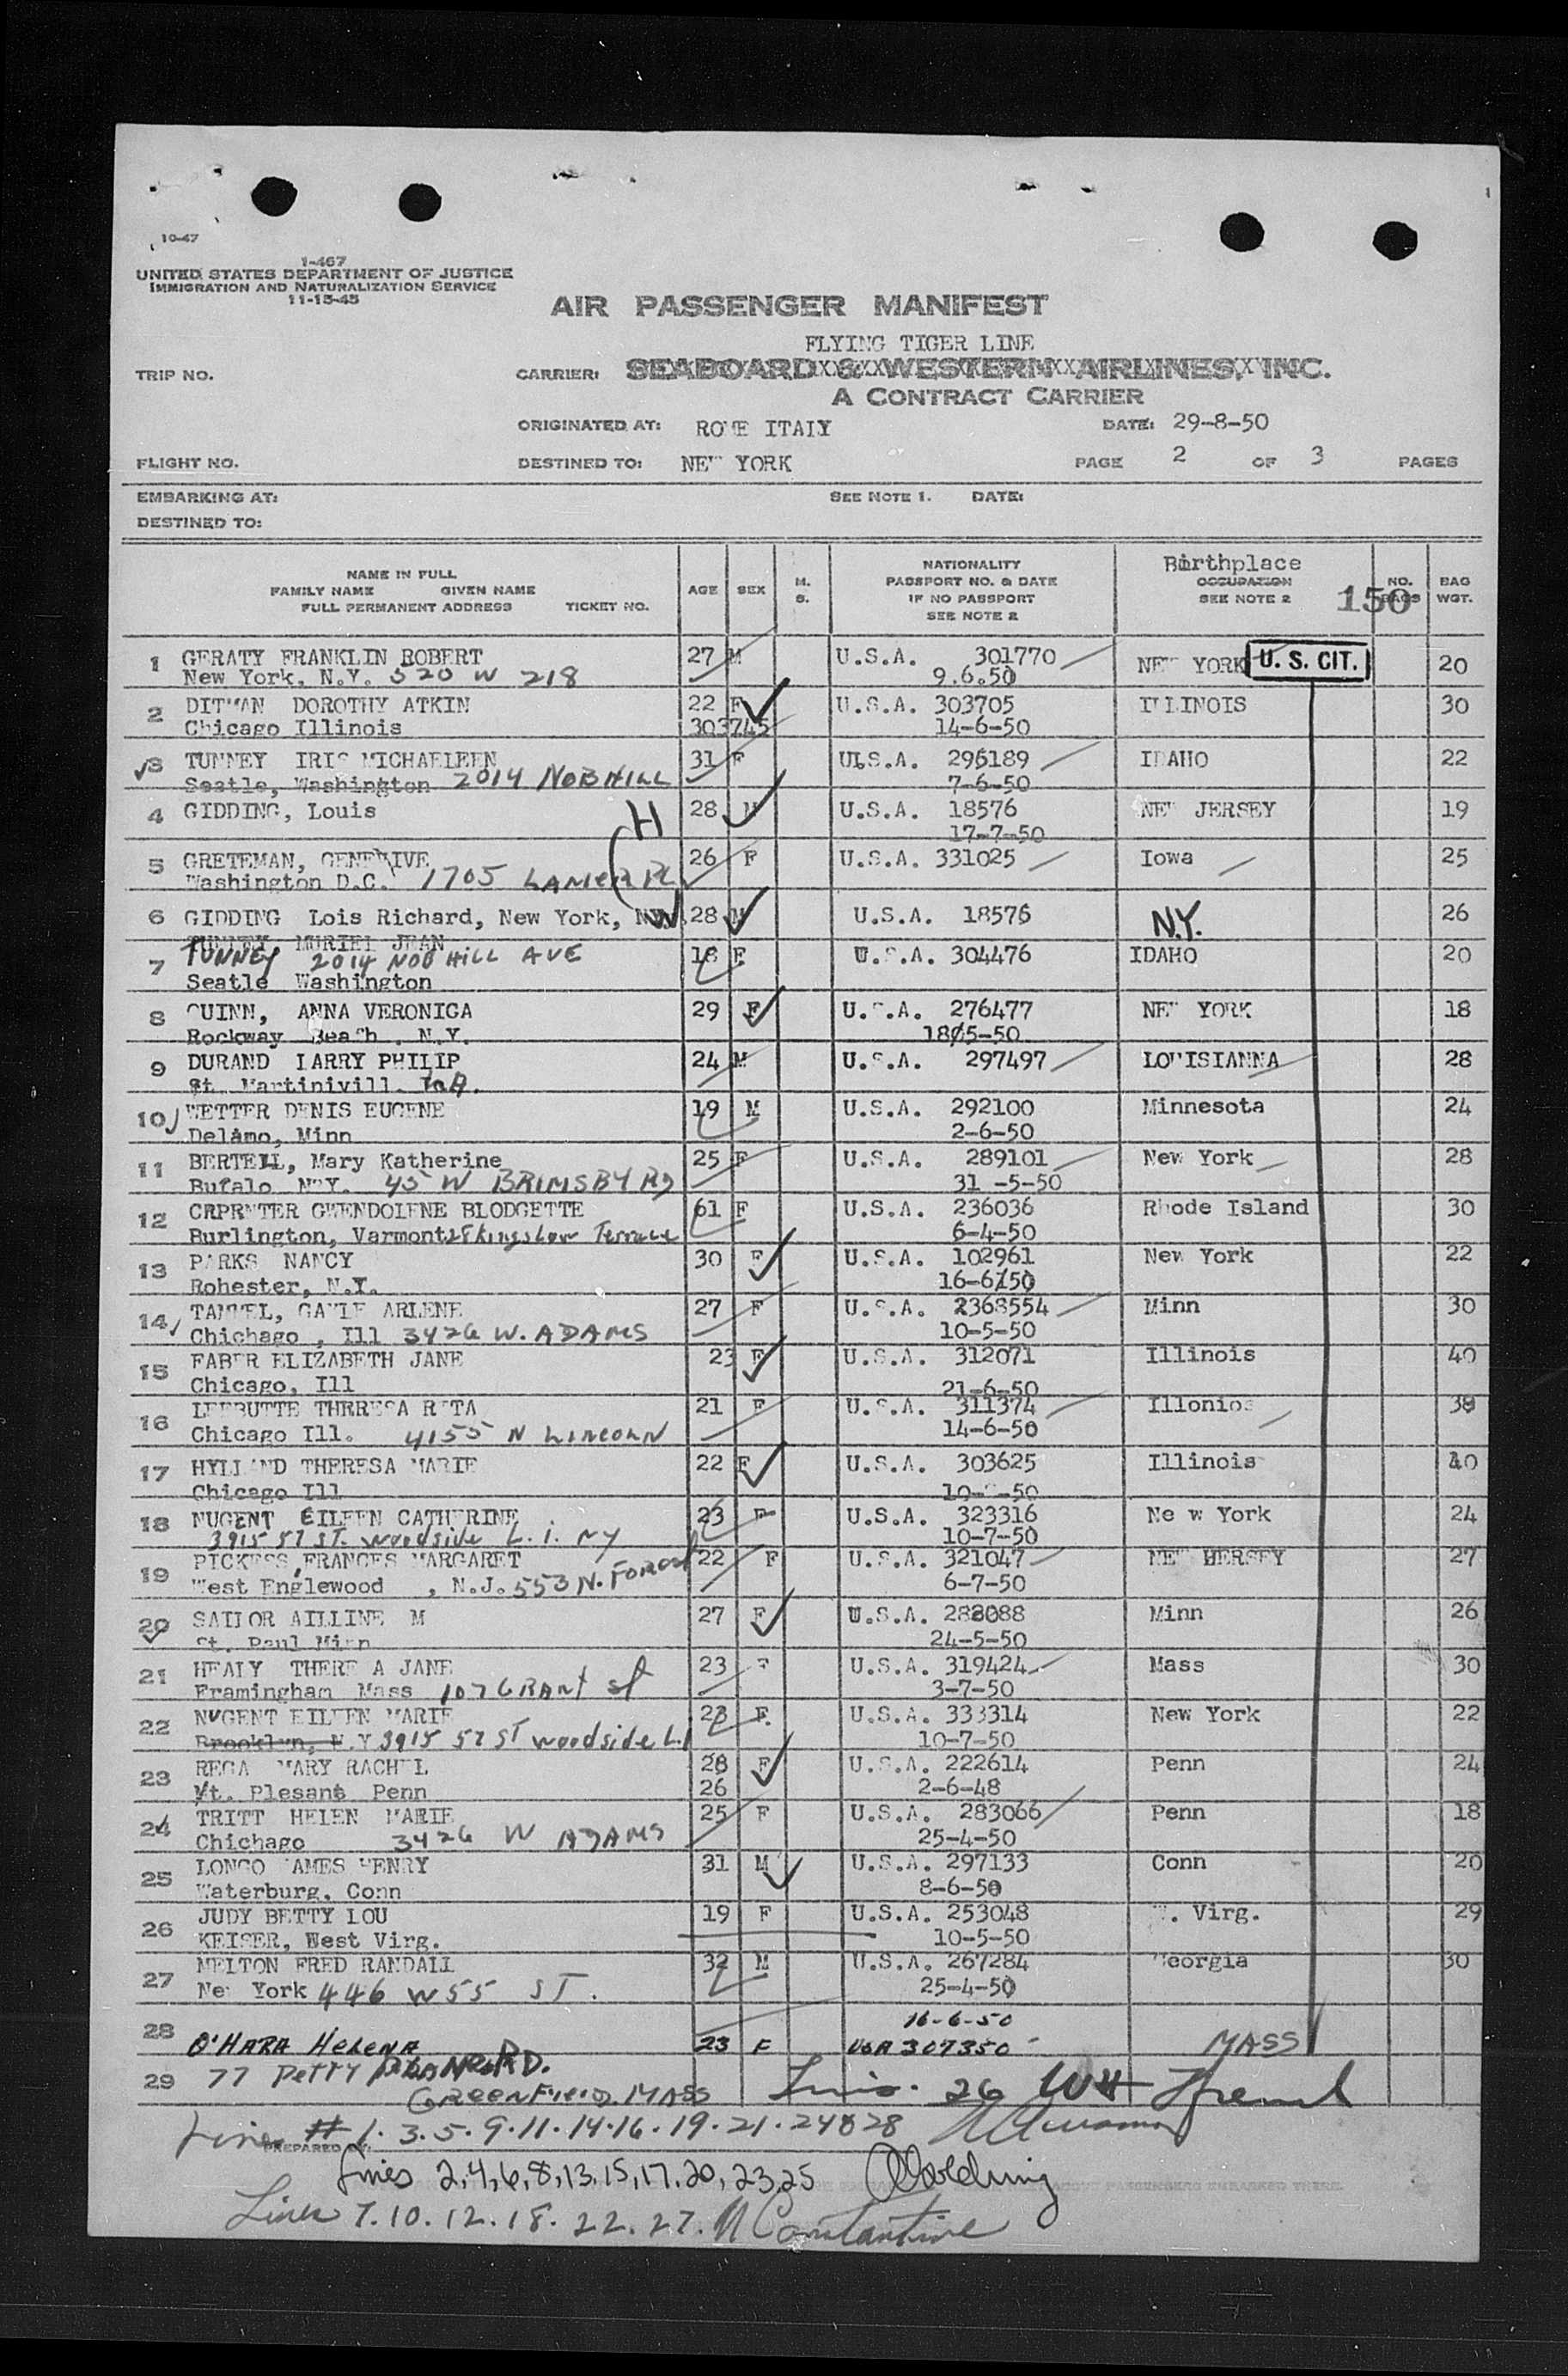 10-47
1-467
UNITED STATES DEPARTMENT OF JUSTICE
IMMIGRATION AND NATURALIZATION SERVICE
11-15-45
AIR PASSENGER MANIFEST
FLYING TIGER LINE
TRIP NO. CARRIER: SEABOARD & WESTERN AIRLINES, INC.
A CONTRACT CARRIER
ORIGINATED AT: ROME ITALY DATE: 29-8-50
FLIGHT NO. DESTINED TO: NEW YORK PAGE 2 OF 3 PAGES
EMBARKING AT: SEE NOTE 1. DATE:
DESTINED TO:
NAME IN FULL
FAMILY NAME GIVEN NAME
FULL PERMANENT ADDRESS TICKET NO.
AGE SEX M. S.
NATIONALITY
PASSPORT NO. & DATE
IF NO PASSPORT
SEE NOTE 2
Birthplace
OCCUPATION
SEE NOTE 2
150
NO. BAGS
BAG WGT.
1 GERATY FRANKLIN ROBERT 27 M U.S.A. 301770 NEW YORK U. S. CIT. 20
New York, N.Y. 520 W 218 9.6.50
2 DITMAN DOROTHY ATKIN 22 F U.S.A. 303705 ILLINOIS 30
Chicago Illinois 303745 14-6-50
3 TUNNEY IRIS MICHAELEEN 31 F U.S.A. 295189 IDAHO 22
Seatle, Washington 2014 NOB HILL 7-6-50
4 GIDDING, Louis H 28 M U.S.A. 18576 NEW JERSEY 19
17-7-50
5 GRETEMAN, GENEVIVE 26 F U.S.A. 331025 Iowa 25
Washington D.C. 1705 LANIER PL
6 GIDDING Lois Richard, New York, 28 M U.S.A. 18576 N.Y. 26
TUNNEY, MURIEL JEAN
7 TUNNEY 2014 NOB HILL AVE 18 F U.S.A. 304476 IDAHO 20
Seatle Washington
8 QUINN, ANNA VERONICA 29 F U.S.A. 276477 NEW YORK 18
Rockway Beach, N.Y. 18/5-50
9 DURAND LARRY PHILIP 24 M U.S.A. 297497 LOUISIANNA 28
St. Martinivill. LA.
10 WETTER DENIS EUGENE 19 M U.S.A. 292100 Minnesota 24
Delamo, Minn 2-6-50
11 BERTELL, Mary Katherine 25 F U.S.A. 289101 New York 28
Bufalo N.Y. 45 W BRIMSBY RD 31 -5-50
12 CRPRNTER GWENDOLENE BLODGETTE 61 F U.S.A. 236036 Rhode Island 30
Burlington, Varmont 28 Kingslow Terrace 6-4-50
13 PARKS NANCY 30 F U.S.A. 102961 New York 22
Rohester, N.Y. 16-6/50
14 TAMMEL, GAYLE ARLENE 27 F U.S.A. 2368554 Minn 30
Chichago , Ill 3426 W. ADAMS 10-5-50
15 FABER ELIZABETH JANE 23 F U.S.A. 312071 Illinois 40
Chicago, Ill 21-6-50
16 THERESA RITA 21 F U.S.A. 311374 Illonios 38
Chicago Ill. 4155 N LINCOLN 14-6-50
17 HYLLAND THERESA MARIE 22 F U.S.A. 303625 Illinois 40
Chicago Ill
18 NUGENT EILEEN CATHERINE 23 F U.S.A. 323316 Ne w York 24
3915 57 ST. woodside L. I. NY 10-7-50
19 FRANCES MARGARET 22 F U.S.A. 321047 NEW HERSEY 27
West Englewood , N.J. 553 N. Forest 6-7-50
20 SAILOR AILLINE M 27 F U.S.A. 288088 Minn 26
St. Paul Minn 24-5-50
21 HEALY THERESA JANE 23 F U.S.A. 319424 Mass 30
Framingham Mass 107 GRANT St 3-7-50
22 NUGENT EILEEN MARIE 23 F. U.S.A. 333314 New York 22
Brooklyn, N.Y 3915 57 ST woodside L.I 10-7-50
23 REGA MARY RACHEL 28 F U.S.A. 222614 Penn 24
Mt. Plesant Penn 26 2-6-48
24 TRITT HELEN MARIE 25 F U.S.A. 283066 Penn 18
Chichago 3426 W ADAMS 25-4-50
25 LONGO JAMES HENRY 31 M U.S.A. 297133 Conn 20
Waterburg, Conn 8-6-50
26 JUDY BETTY LOU 19 F U.S.A. 253048 W. Virg. 29
KEISER, West Virg. 10-5-50
27 MELTON FRED RANDALL 32 M U.S.A. 267284 Georgia 30
New York 446 W 55 ST. 25-4-50
16-6-50
28 O'HARA HELENA 23 F USA 307350 MASS
29 77 Petty RD.
GREENFIELD, MASS 26
Lines # 1. 3. 5. 9. 11. 14. 16. 19. 21. 24 & 28
PREPARED BY:
Lines 2,4,6,8,13,15,17,20,23,25
Lines 7. 10. 12. 18. 22. 27. Constantine